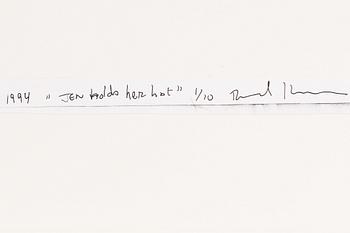 1994 "JEN holds her hat" 1/10